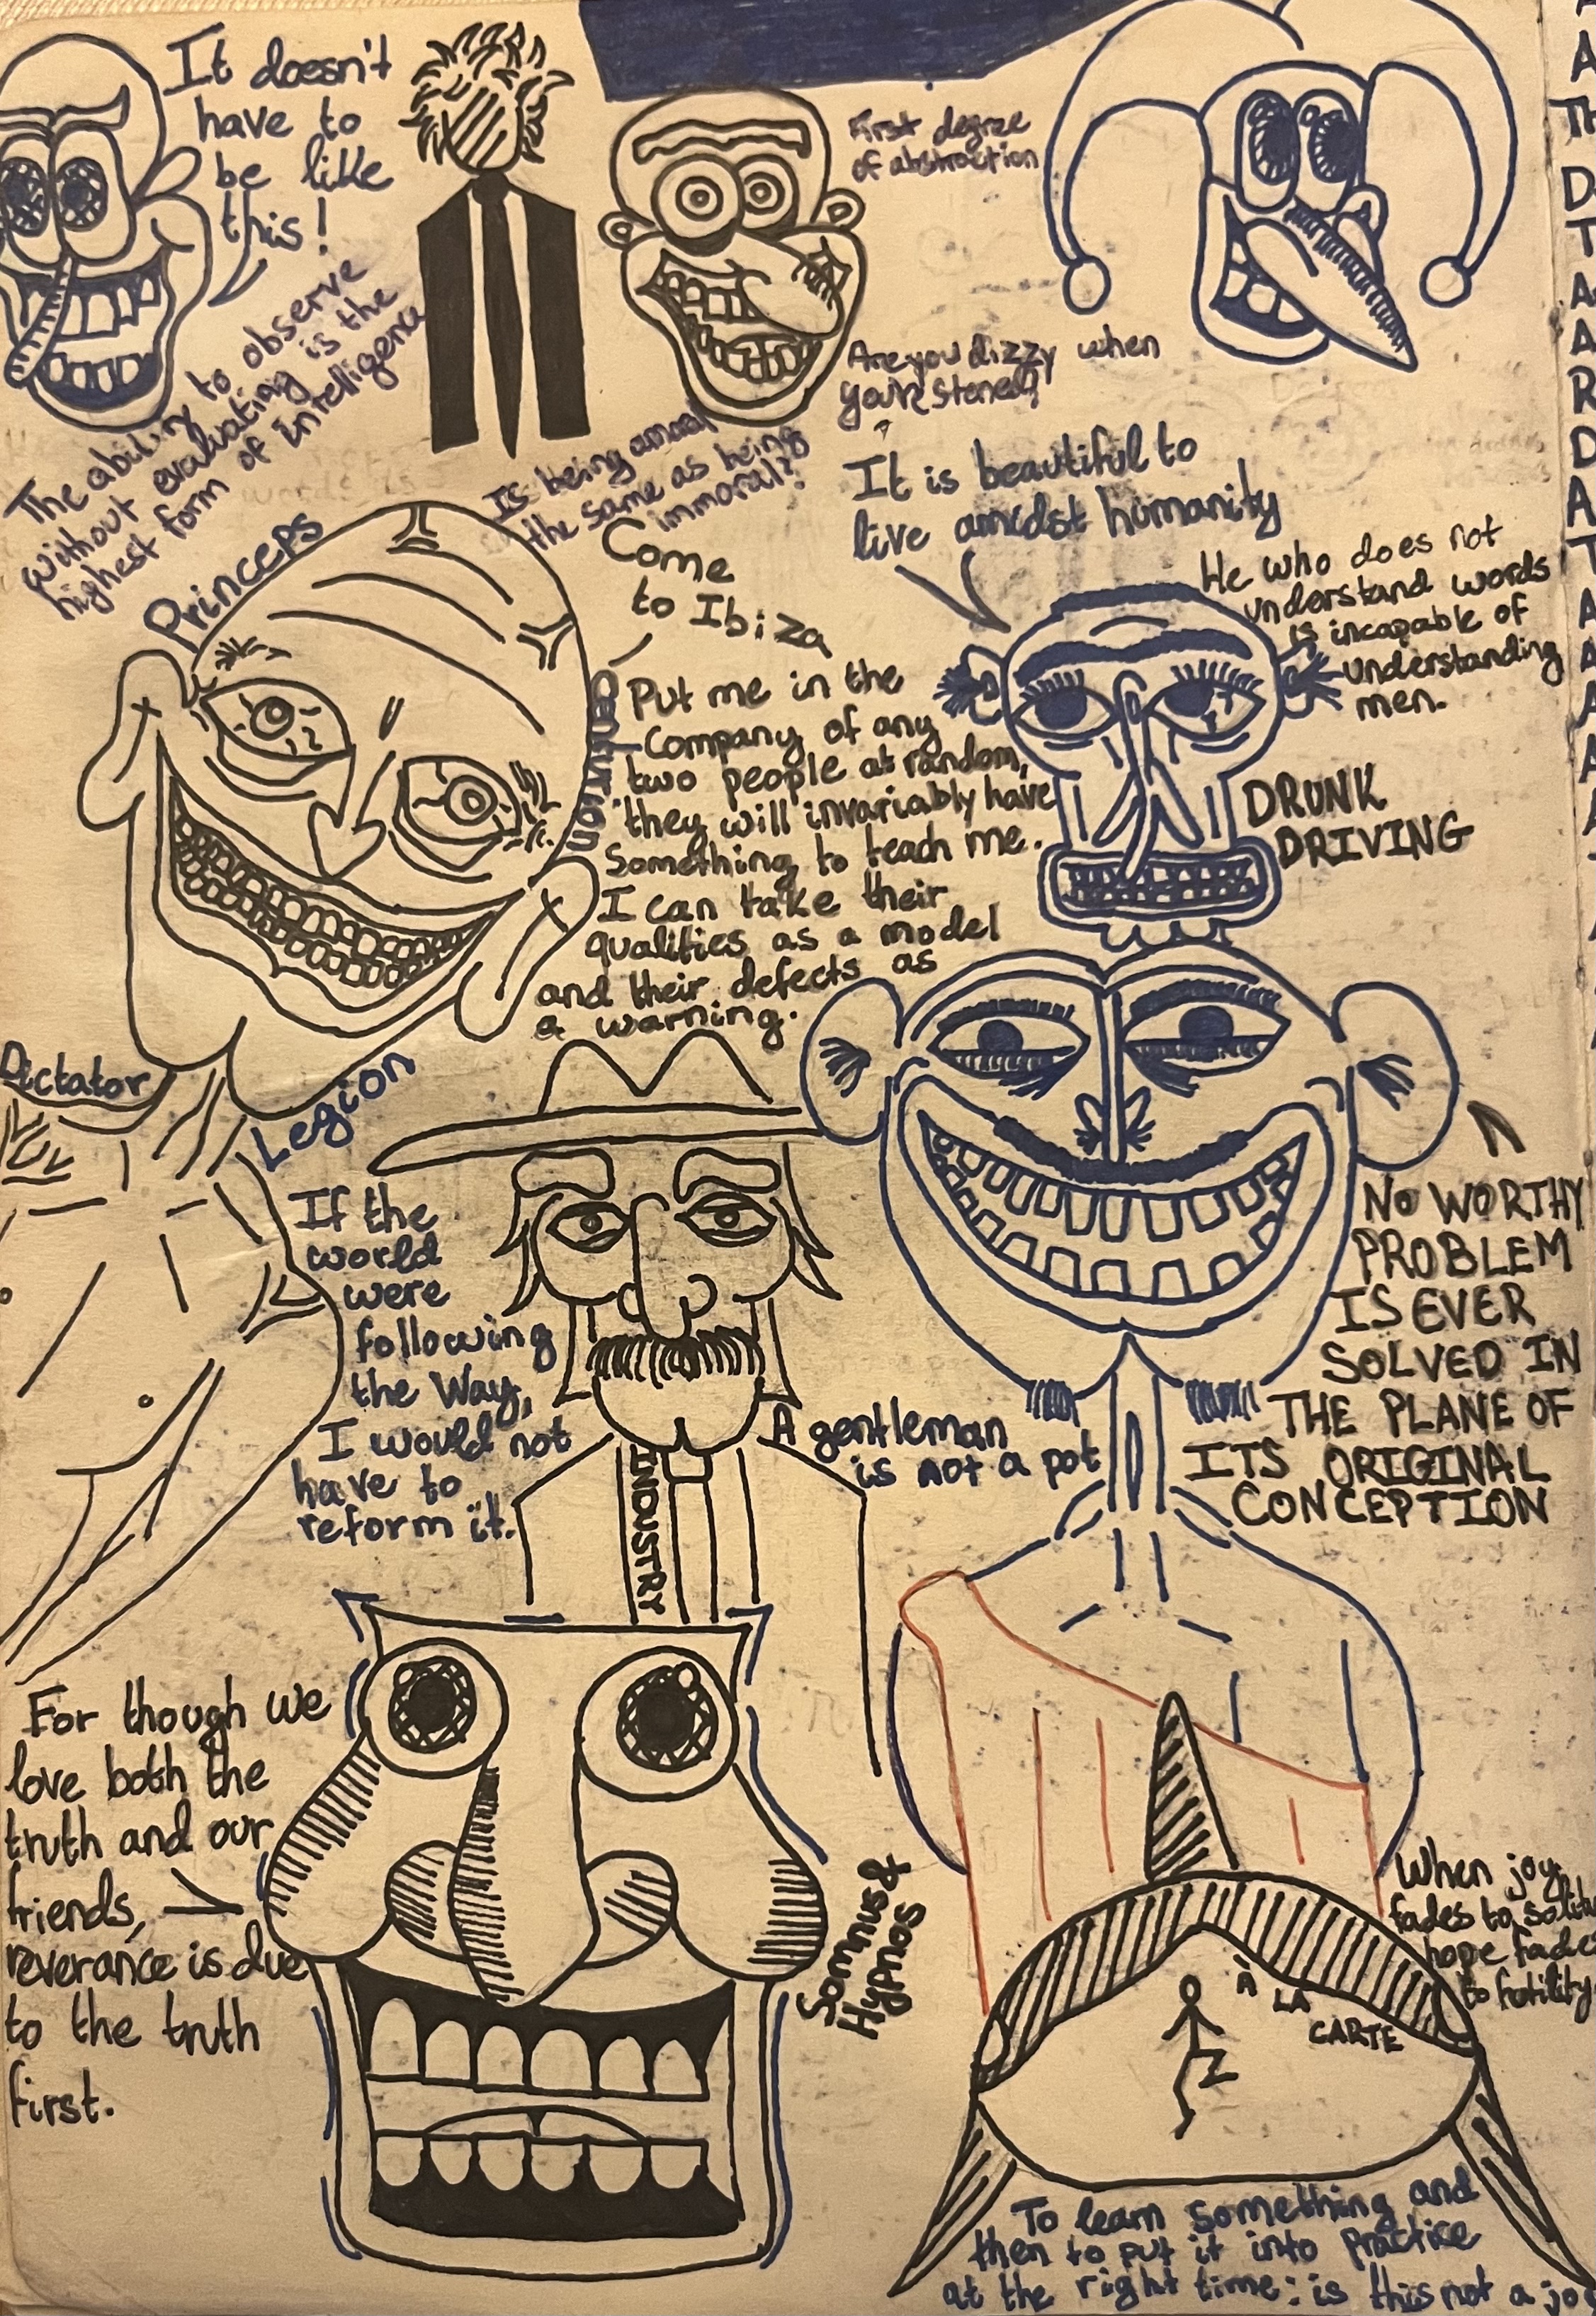 It doesn't
have to
be like
this!
First degree
of abstraction
The ability to observe
without evaluating is the
highest form of intelligence
Are you dizzy when
you're stoned?
Is being amoral
the same as being
immoral?
It is beautiful to
live amidst humanity
Princeps
Come
to Ibiza
He who does not
understand words
is incapable of
understanding
men.
Centurion
Put me in the
Company of any
two people at random,
they will invariably have
Something to teach me.
I can take their
qualities as a model
and their defects as
a warning.
DRUNK
DRIVING
Dictator
Legion
If the
world
were
following
the Way,
I would not
have to
reform it.
NO WORTHY
PROBLEM
IS EVER
SOLVED IN
THE PLANE OF
ITS ORIGINAL
CONCEPTION
A gentleman
is not a pot
INDUSTRY
For though we
love both the
truth and our
friends,
reverance is due
to the truth
first.
Somnus &
Hypnos
When joy
fades to
hope
to futility
À
LA
CARTE
To learn something and
then to put it into practice
at the right time: is this not a